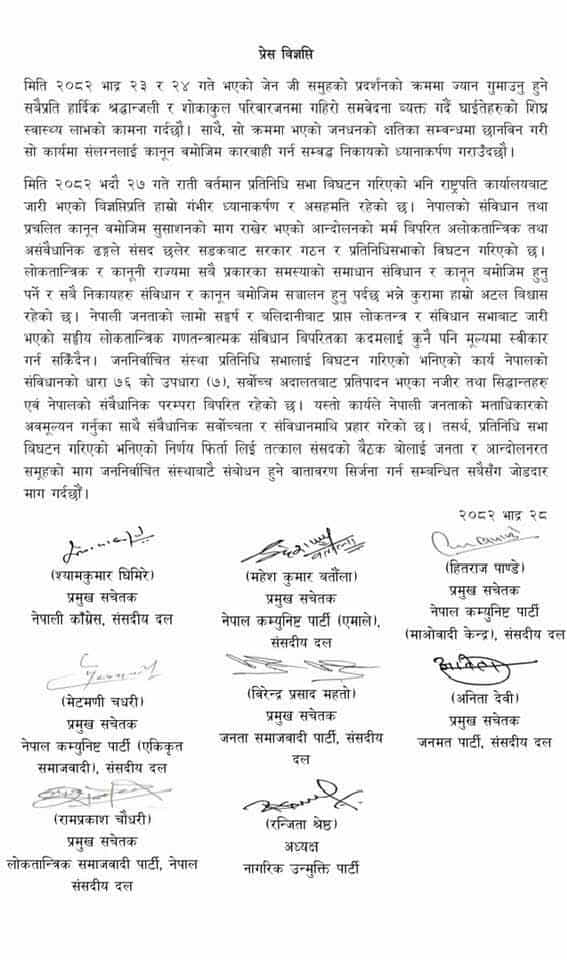 प्रेस विज्ञप्ति
मिति २०८२ भाद्र २३ र २४ गते भएको जेन जी समुहको प्रदर्शनको क्रममा ज्यान गुमाउनु हुने
सबैप्रति हार्दिक श्रद्धान्जली र शोकाकुल परिवारजनमा गहिरो समवेदना व्यक्त गर्दै घाईतेहरुको शिघ्र
स्वास्थ्य लाभको कामना गर्दछौ। साथै, सो क्रममा भएको जनधनको क्षतिका सम्बन्धमा छानविन गरी
सो कार्यमा संलग्नलाई कानून बमोजिम कारबाही गर्न सम्बद्ध निकायको ध्यानाकर्षण गराउँदछौ।
मिति २०८२ भदौ २७ गते राती वर्तमान प्रतिनिधि सभा विघटन गरिएको भनि राष्ट्रपति कार्यालयबाट
जारी भएको विज्ञप्तिप्रति हाम्रो गंभीर ध्यानाकर्षण र असहमति रहेको छ। नेपालको संविधान तथा
प्रचलित कानून बमोजिम सुसाशनको माग राखेर भएको आन्दोलनको मर्म बिपरित अलोकतान्त्रिक तथा
असंवैधानिक ढङ्गले संसद छलेर सडकबाट सरकार गठन र प्रतिनिधिसभाको विघटन गरिएको छ।
लोकतान्त्रिक र कानूनी राज्यमा सबै प्रकारका समस्याको समाधान संविधान र कानून बमोजिम हुनु
पर्ने र सबै निकायहरु संविधान र कानून बमोजिम सञ्चालन हुनु पर्दछ भन्ने कुरामा हाम्रो अटल बिश्वास
रहेको छ। नेपाली जनताको लामो सङ्घर्ष र बलिदानीबाट प्राप्त लोकतन्त्र र संविधान सभाबाट जारी
भएको सङ्घीय लोकतान्त्रिक गणतन्त्रात्मक संविधान बिपरितका कदमलाई कुनै पनि मूल्यमा स्वीकार
गर्न सकिँदैन। जननिर्वाचित संस्था प्रतिनिधि सभालाई विघटन गरिएको भनिएको कार्य नेपालको
संविधानको धारा ७६ को उपधारा (७), सर्वोच्च अदालतबाट प्रतिपादन भएका नजीर तथा सिद्धान्तहरु
एवं नेपालको संवैधानिक परम्परा बिपरित रहेको छ। यस्तो कार्यले नेपाली जनताको मताधिकारको
अवमूल्यन गर्नुका साथै संवैधानिक सर्वोच्चता र संविधानमाथि प्रहार गरेको छ। तसर्थ, प्रतिनिधि सभा
विघटन गरिएको भनिएको निर्णय फिर्ता लिई तत्काल संसदको बैठक बोलाई जनता र आन्दोलनरत
समूहको माग जननिर्वाचित संस्थाबाटै संबोधन हुने वातावरण सिर्जना गर्न सम्बन्धित सबैसँग जोडदार
माग गर्दछौं।
२०८२ भाद्र २८
(श्यामकुमार घिमिरे)
प्रमुख सचेतक
नेपाली काँग्रेस, संसदीय दल
(महेश कुमार बर्तौला)
प्रमुख सचेतक
नेपाल कम्युनिष्ट पार्टी (एमाले),
संसदीय दल
(हितराज पाण्डे)
प्रमुख सचेतक
नेपाल कम्युनिष्ट पार्टी
(माओवादी केन्द्र), संसदीय दल
(मेटमणी चधरी)
प्रमुख सचेतक
नेपाल कम्युनिष्ट पार्टी (एकिकृत
समाजवादी), संसदीय दल
(बिरेन्द्र प्रसाद महतो)
प्रमुख सचेतक
जनता समाजवादी पार्टी, संसदीय
दल
(अनिता देवी)
प्रमुख सचेतक
जनमत पार्टी, संसदीय दल
(रामप्रकाश चौधरी)
प्रमुख सचेतक
लोकतान्त्रिक समाजवादी पार्टी, नेपाल
संसदीय दल
(रन्जिता श्रेष्ठ)
अध्यक्ष
नागरिक उन्मुक्ति पार्टी